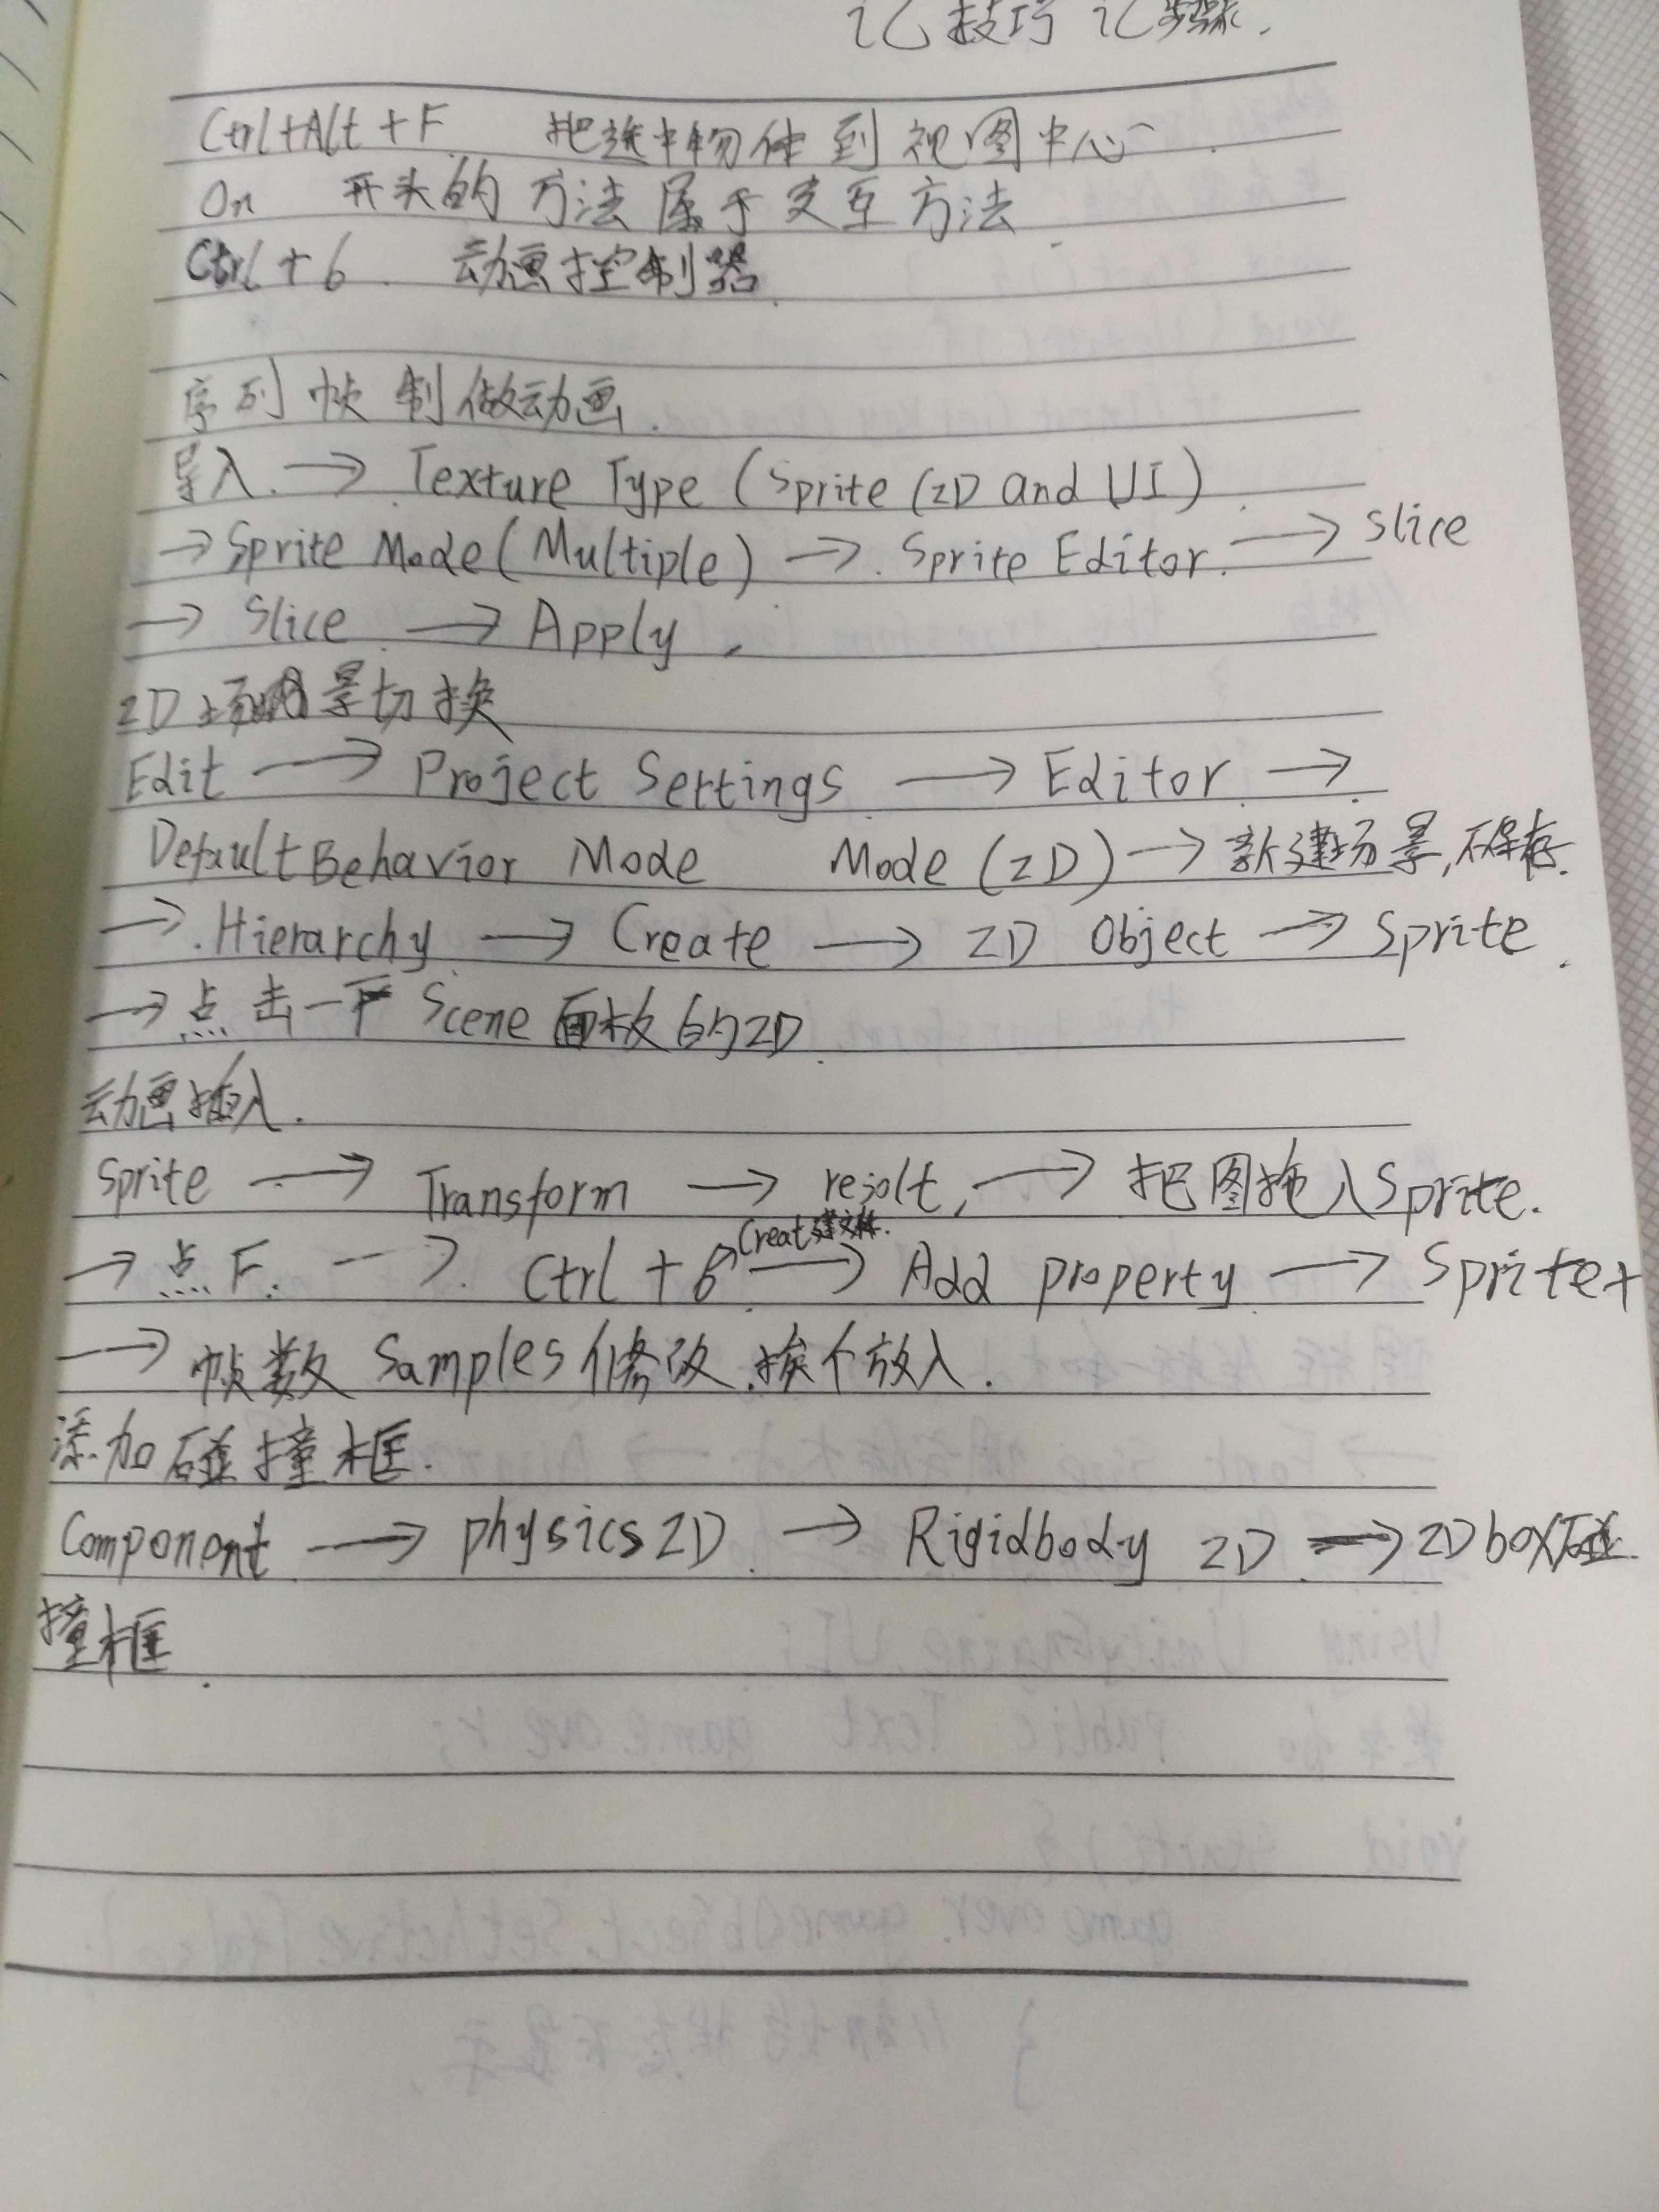 记技巧 记步骤.
Ctrl+Alt+F 把选中物体到视图中心
On 开头的方法属于交互方法
Ctrl+6 动画控制器
序列帧制做动画.
导入 → Texture Type (Sprite (2D and UI)
→ Sprite Mode (Multiple) → Sprite Editor. → Slice
→ Slice → Apply.
2D场景切换
Edit → Project Settings → Editor →
Default Behavior Mode Mode (2D) → 新建场景,不保存.
→ Hierarchy → Create → 2D Object → Sprite
→ 点击一下 Scene 面板的2D
动画插入.
Sprite → Transform → resolt, → 把图拖入Sprite.
→ 点F. → Ctrl + 6 → Creat 建文件. Add property → Sprite+
→ 帧数 Samples修改.挨个放入.
添加碰撞框.
Component → physics2D → Rigidbody 2D → 2Dbox碰
撞框.